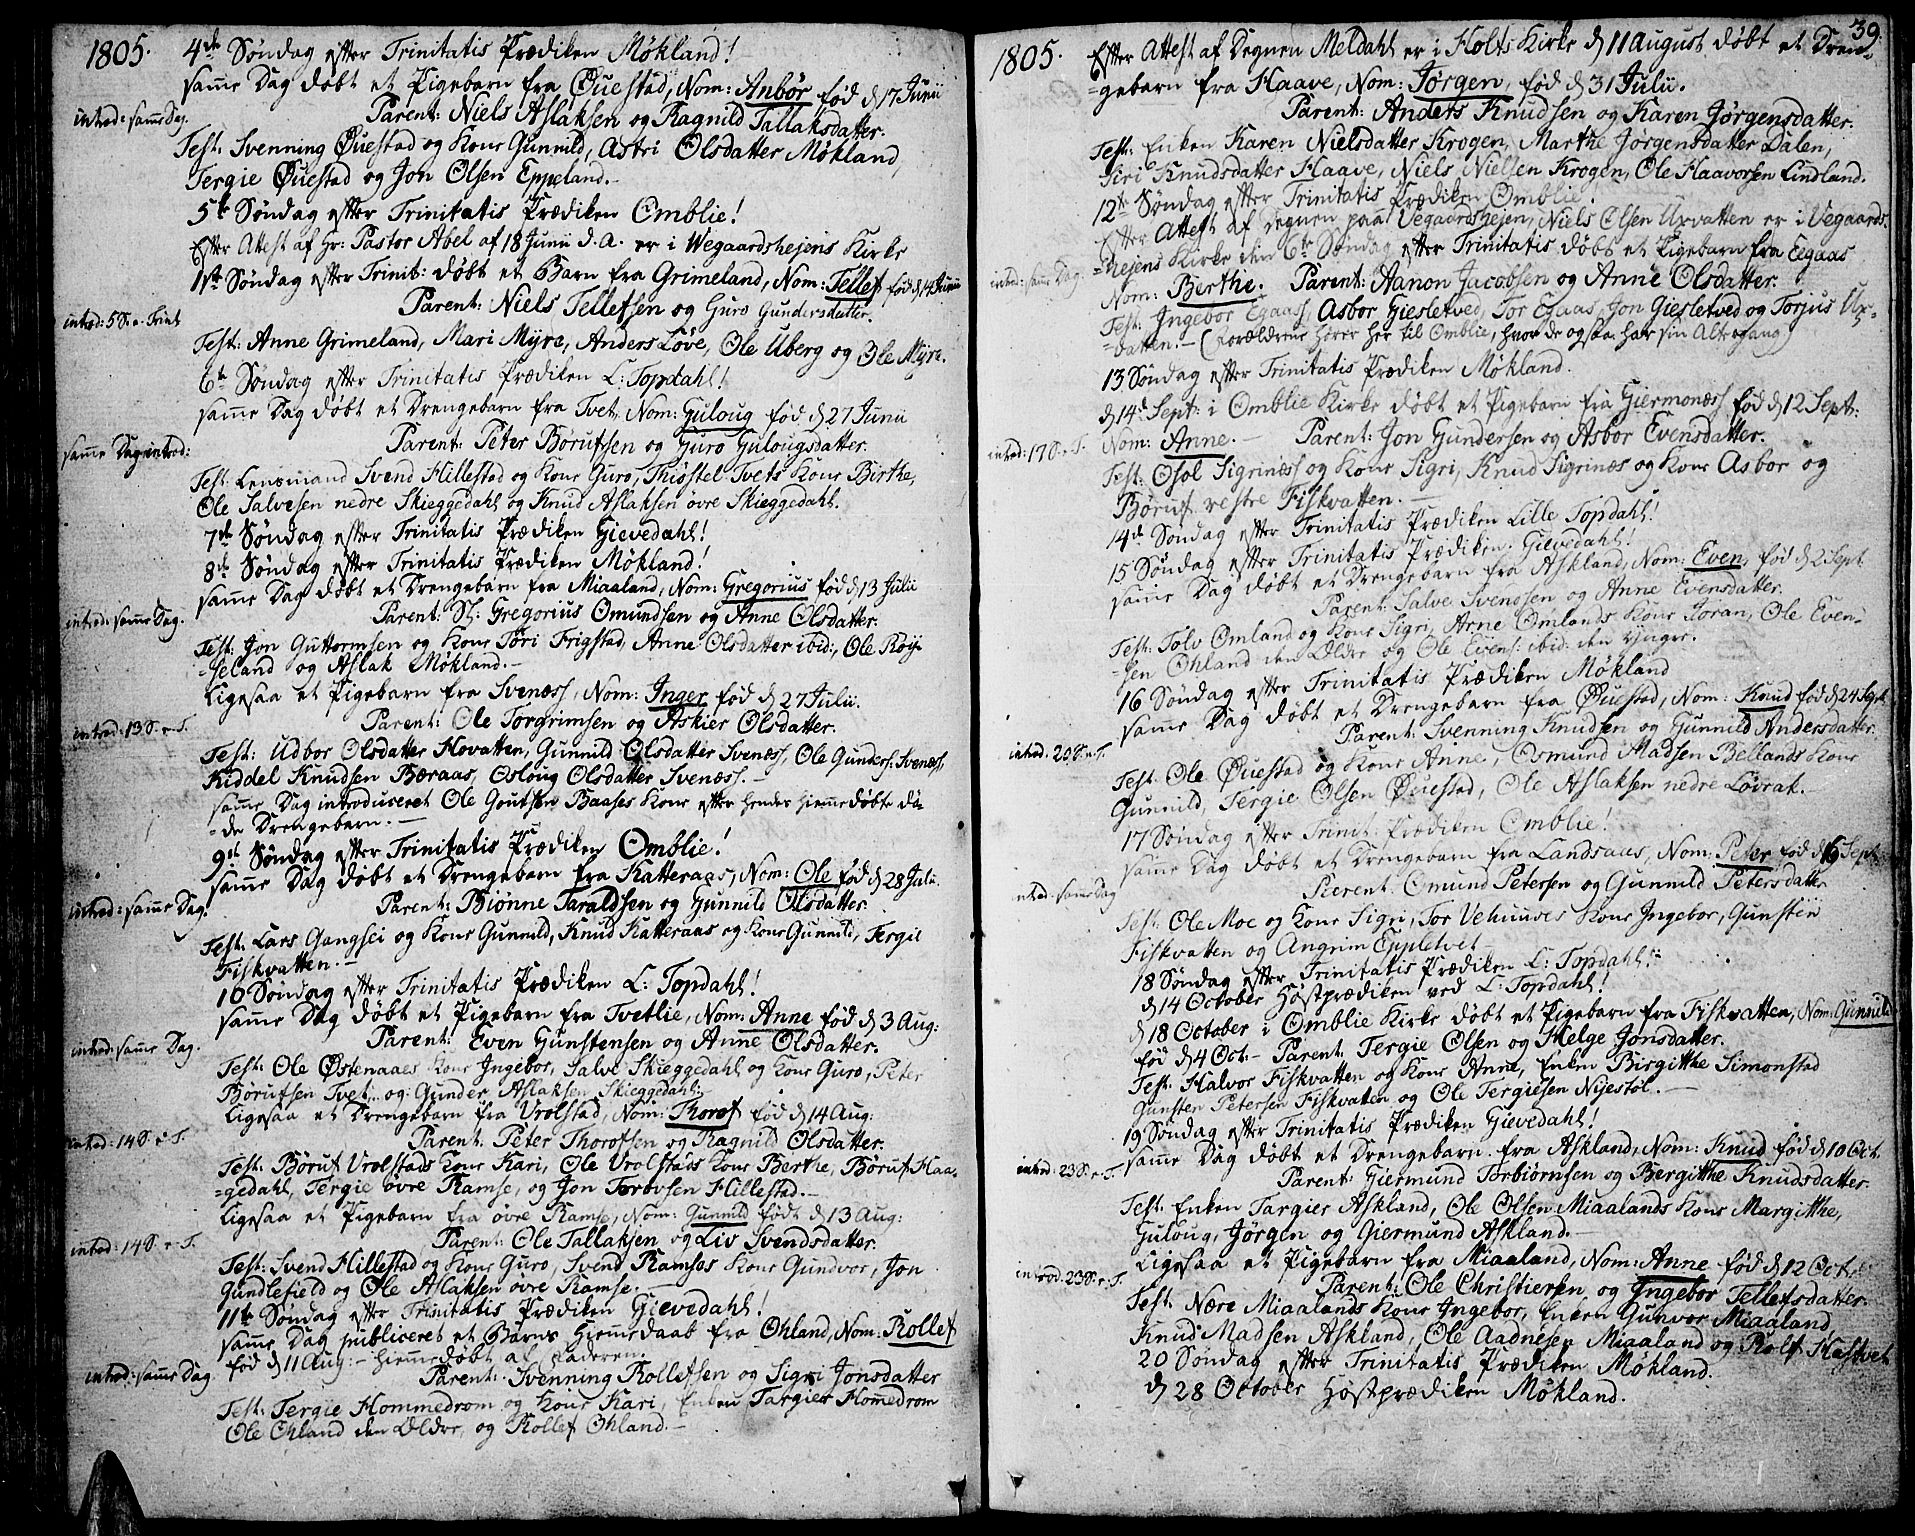 1805.
4de Søndag efter Trinitatis Prædiken Møkland!
samme Dag døbt et Pigebarn fra Ouestad, Nom: Anbor fød d 17 Junii
introd: samme Dag.
Parent: Niels Aslaksen og Ragnild Tallaksdatter.
Test: Svenning Øuestad og Kone Gunnild, Astri Olsdatter Møkland,
Tergie Øuestad og Jon Olsen Eppeland.-
5te Søndag efter Trinitatis Prædiken Omblie!
Efter Attest af Hr: Pastor Abel af 18 Junii d. A. er i Wegaardshejens Kirke
1ste Søndag efter Trinit: døbt et Barn fra Grimeland, Nom: Tellef fød d 14 Junii
introd: 5 S. e. Trinit
Parent: Niels Tellefsen og Guro Gundersdatter.
Test: Anne Grimeland, Mari Myre, Anders Løve, Ole Uberg og Ole Myre.
6te Søndag efter Trinitatis Prædiken L: Topdahl!
samme Dag døbt et Drengebarn fra Tvet, Nom: Guloug fød d 27 Junii
samme Dag introd:
Parent: Peter Børufsen og Guro Gulougsdatter.
Test: Lensmand Svend Hillestad og Kone Guro, Thostel Tvets Kone Birthe,
Ole Salvesen nedre Skieggedahl og Knud Aslaksen øvre Skieggedahl.
7de Søndag efter Trinitatis Prædiken Gievedahl!
8de Søndag efter Trinitatis Prædiken Møkland!
samme Dag døbt et Drengebarn fra Miaaland, Nom: Gregorius fød d 13 Julii
introd: samme Dag.
Parent: Sl: Gregorius Omundsen og Anne Olsdatter.
Test: Jon Guttormsen og Kone Tori Frigstad, Anne Olsdatter ibid:, Ole Röy-
=seland og Aslak Møkland.-
Ligesaa et Pigebarn fra Svenæss, Nom: Inger fød d 27 Julii.
introd: 13 S. e. T.
Parent: Ole Torgrimsen og Askier Olsdatter.
Test: Udbor Olsdatter Hovatten, Gunnild Olsdatter Svenæss, Ole Gunders: Svenæss,
Kiddel Knudsen Bæraas, Osloug Olsdatter Svenæss.-
samme Dag introduceret Ole Goutsen Baases Kone efter hendes hiemmedøbte dö-
=de Drengebarn.-
9de Søndag efter Trinitatis Prædiken Omblie!
samme Dag døbt et Drengebarn fra Katteraas, Nom: Ole fød d 28 Julii.
introd: samme Dag.
Parent: Biönne Taraldsen og Gunnild Olsdatter
Test: Lars Gangsei og Kone Gunnild, Knud Katteraas og Kone Gunnild, Tergie
Fiskvatten.-
10 Søndag efter Trinitatis Prædiken L: Topdahl!
samme Dag døbt et Pigebarn fra Tvetlie, Nom: Anne fød d 3 Aug:
introd: samme Dag.
Parent: Even Gunstensen og Anne Olsdatter.
Test: Ole Østenaaes Kone Ingebor, Salve Skieggedahl og Kone Guro, Peter
Børufsen Tvet, og Gunder Aslaksen Skieggedahl.
Ligesaa et Drengebarn fra Vrolstad, Nom: Thorof fød d 14 Aug:
introd: 14 S. e. T.
Parent: Peter Thorofsen og Ragnild Olsdatter.
Test: Børuf Vrolstads Kone Kari, Ole Vrolstads Kone Berthe, Børuf Haa-
=gedahl, Tergie øvre Ramse, og Jon Torovsen Hillestad.-
Ligesaa et Pigebarn fra øvre Ramse, Nom: Gunnild født d 13 Aug:
introd: 14 S. e. T.
Parent: Ole Tallaksen og Liv Svendsdatter.
Test: Svend Hillestad og Kone Guro, Svend Ramses Kone Gundvor, Jon
Gundlefield og Ole Aslaksen øvre Ramse.-
11te Søndag efter Trinitatis Prædiken Gievedahl!
samme Dag publiceret et Barns Hiemmedaab fra Ohland, Nom: Rollef
fød d 11 Aug:- hiemmedøbt af Faderen.
introd: samme Dag
Parent: Svenning Rollefsen og Sigri Jonsdatter
Test: Tergie Hommedrom og Kone Kari, Enken Targier Hommedrom
Ole Ohland den Ældre, og Rollef Ohland.-
39.
1805.
Efter Attest af Degnen Meldahl er i Holts Kirke d 11 August døbt et Dren-
=gebarn fra Haave, Nom: Jørgen, fød d 31 Julii.
Parent: Anders Knudsen og Karen Jørgensdatter.
Test: Enken Karen Nielsdatter Krogen, Marthe Jørgensdatter Dalen,
Siri Knudsdatter Haave, Niels Nielsen Krogen, Ole Haavorsen Lindland.
12te Søndag efter Trinitatis Prædiken Omblie!
Efter Attest af Degnen paa Vegaardshejen, Niels Olsen Uxvatten er i Vegaards-
=hejens Kirke den 6te Søndag efter Trinitatis døbt et Pigebarn fra Egaas
introd: samme Dag.
Nom: Berthe. Parent: Aanon Jacobsen og Anne Olsdatter.
Test: Ingebor Egaas, Asbor Giesletved, Tor Egaas, Jon Giesletved og Torjus Ux-
=vatten.- (Forældrene hører her til Omblie, hvor de ogsaa har sin Altergang)
13 Søndag efter Trinitatis Prædiken Møkland.
d 14de Sept: i Omblie Kirke døbt et Pigebarn fra Giermonæss fød d 12 Sept:
introd: 17 S. e. T.
Nom: Anne.- Parent: Jon Gundersen og Asbor Evensdatter.
Test: Osol Sigrinæss og Kone Sigri, Knud Sigrinæs og Kone Asbor og
Børuf vestre Fiskvatten.-
14de Søndag efter Trinitatis Prædiken Lille Topdahl!
15 Søndag efter Trinitatis Prædiken Gievedahl!
samme Dag døbt et Drengebarn fra Askland, Nom: Even, fød d 2 Sept.
Parent: Salve Svendsen og Anne Evensdatter.
Test: Tolv Omland og Kone Sigri, Arne Omlands Kone Joran, Ole Even-
=sen Ohland den Ældre og Ole Evens: ibid: den Yngre.
16 Søndag efter Trinitatis Prædiken Møkland
samme Dag døbt et Drengebarn fra Øuestad, Nom: Knud fød d 24 Sept.
introd: 20 S. e. T.
Parent: Svenning Knudsen og Gunnild Andersdatter.
Test: Ole Øuestad og Kone Anne, Osmund Madsen Bellands Kone
Gunnild, Tergie Olsen Øuestad, Ole Aslaksen nedre Løvrak.-
17 Søndag efter Trinit: Prædiken Omblie!
samme Dag døbt et Drengebarn fra Landsaas, Nom: Peter fød d 16 Sept.
introd: samme Dag
Parent: Omund Petersen og Gunnild Petersdatter
Test: Ole Moe og Kone Sigri, Tor Vehuuses Kone Ingebor, Gunsten
Fiskvatten og Angrim Eppletvet-
18 Søndag efter Trinitatis Prædiken L: Topdahl!
d 14 October Høstprædiken ved L: Topdahl!
d 18 October i Omblie Kirke døbt et Pigebarn fra Fiskvatten, Nom: Gunnild
fød d 4 Oct.- Parent: Tergie Olsen og Helge Jonsdatter.
Test: Halvor Fiskvatten og Kone Anne, Enken Birgitthe Simonstad
Gunsten Petersen Fiskvatten og Ole Tergiesen Nyestöl.-
19 Søndag efter Trinitatis Prædiken Gievedahl!
samme Dag døbt et Drengebarn fra Askland, Nom: Knud fød d 10 Oct.
introd: 23 S. e. T.
Parent: Giermund Torbiörnsen og Bergitthe Knudsdatter.
Test: Enken Targier Askland, Ole Olsen Miaalands Kone Margitthe,
Guloug, Jørgen og Giermund Askland.-
Ligesaa et Pigebarn fra Miaaland, Nom: Anne fød d 12 Oct.
introd: 23 S. e. T.
Parent: Ole Christiersen og Ingebor Tellefsdatter.
Test: Nære Miaalands Kone Ingebor, Enken Gunvor Miaaland,
Knud Madsen Askland, Ole Aadnesen Miaaland og Rolf Hastvet
20 Søndag efter Trinitatis Prædiken Møkland.
d 28 October Høstprædiken Møkland.